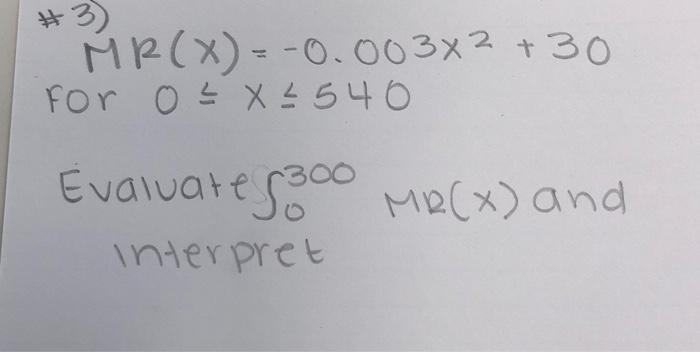 #3)
MR(X) = -0.003x² + 30
For 0 ≤ x ≤ 540
Evaluate ∫₀³⁰⁰ MR(x) and
interpret